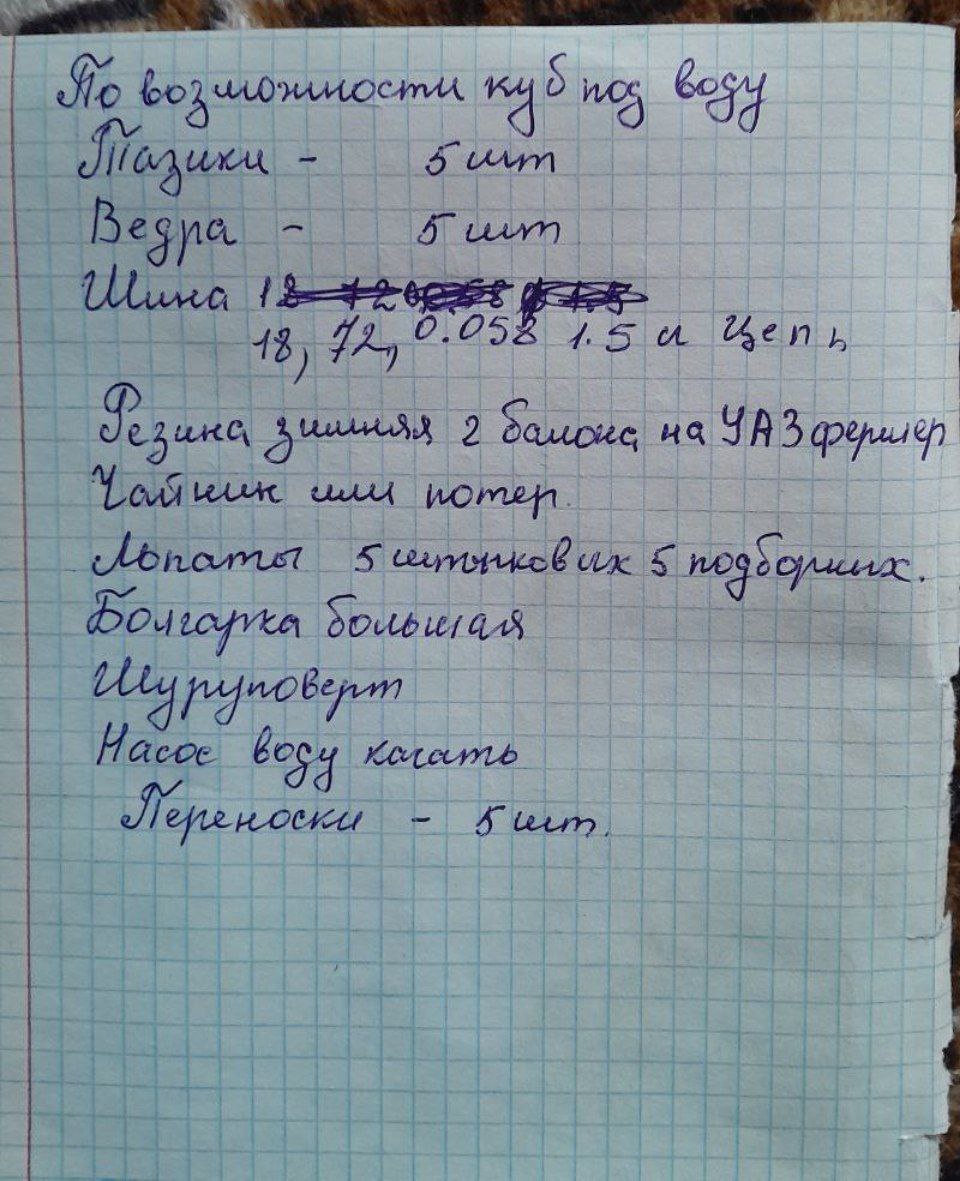 По возможности куб под воду
Тазики - 5 шт
Ведра - 5 шт
Шина
18, 72, 0.058 1.5 и цепь
Резина зимняя 2 балона на УАЗ фермер
Чайник или потер.
Лопаты 5 штыковых 5 подборных.
Болгарка большая
Шуруповерт
Насос воду качать
Переноски - 5 шт.